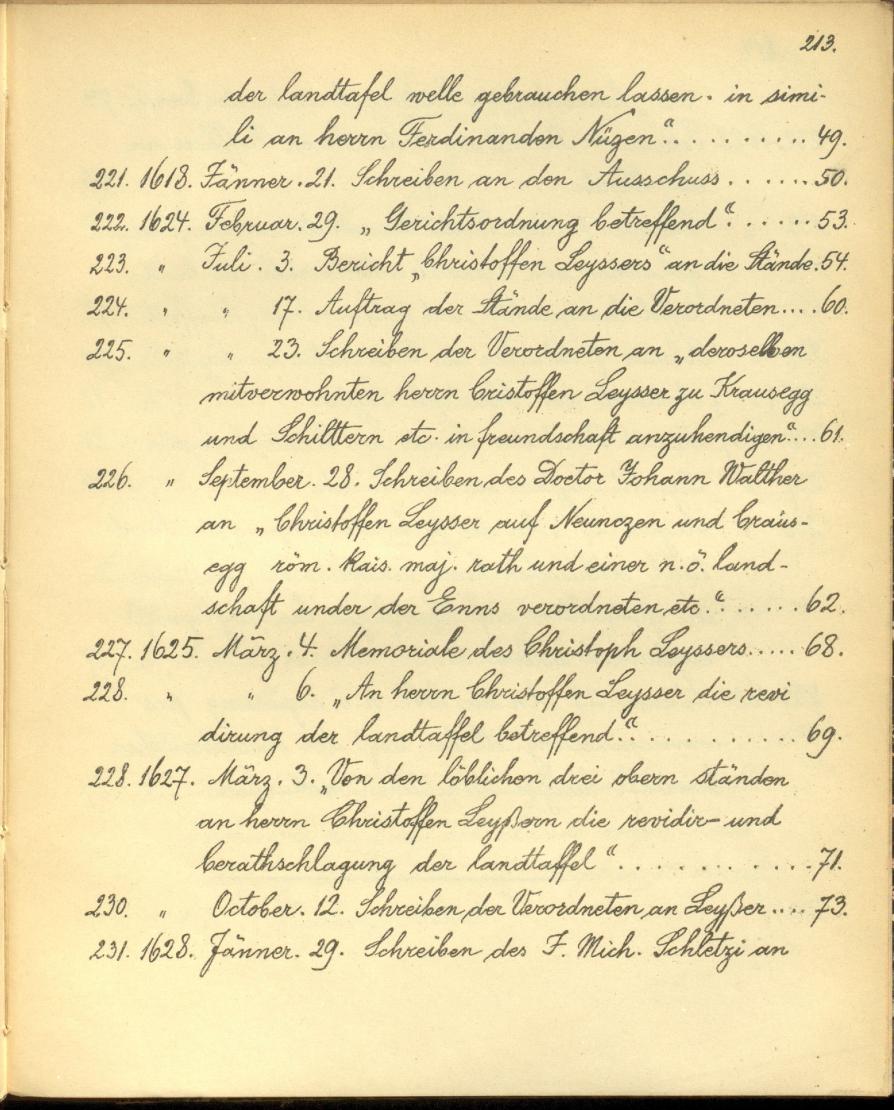 213.
der landtafel welle gebrauchen lassen. in simi-
li an herrn Ferdinanden Nügen“.......... 49.
221. 1618. Jänner. 21. Schreiben an den Ausschuss......50.
222. 1624. Februar. 29. „Gerichtsordnung betreffend“......53.
223. „ Juli. 3. Bericht „Christoffen Leyssers“ an die Stände.54.
224. „ „ 17. Auftrag der Stände an die Verordneten....60.
225. „ „ 23. Schreiben der Verordneten an „deroselben
mitverwohnten herrn Cristoffen Leysser zu Krausegg
und Schilttern etc. in freundschaft anzuhendigen“....61.
226. „ September. 28. Schreiben des Doctor Johann Walther
an „Christoffen Leysser auf Neunczen und Craus-
egg röm. kais. maj. rath und einer n. ö. land-
schaft under der Enns verordneten etc.“......62.
227. 1625. März. 4. Memoriale des Christoph Leyssers.....68.
228. „ „ 6. „An herrn Christoffen Leysser die revi
dirung der landtaffel betreffend“...........69.
228. 1627. März. 3. „Von den löblichen drei obern ständen
an herrn Christoffen Leyßern die revidir- und
berathschlagung der landtaffel“............71.
230. „ October. 12. Schreiben der Verordneten an Leyßer....73.
231. 1628. Jänner. 29. Schreiben des F. Mich. Schletzi an